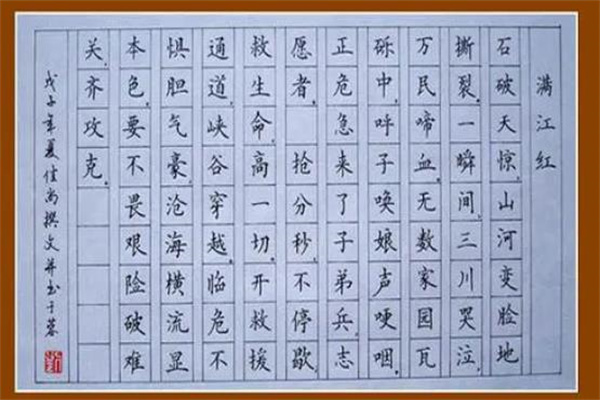 满江红
石破天惊,山河变脸地
撕裂.一瞬间,三川哭泣.
万民啼血.无数家园瓦
砾中,呼子唤娘声哽咽.
正危急来了子弟兵,志
愿者. 抢分秒,不停歇
救生命,高一切.开救援
通道,峡谷穿越.临危不
惧胆气豪,沧海横流显
本色.要不畏艰险破难
关齐攻克.
戊子年夏佳尚撰文并书于蓉